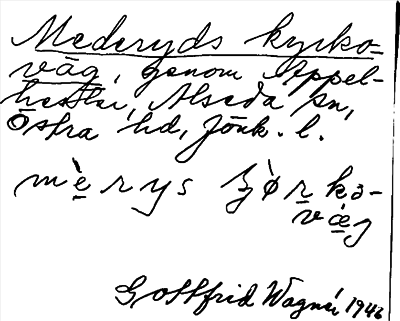 Mederyds kyrko-
väg, genom Appel-
hester, Alseda sn,
Östra hd, Jönk. l.
mèrys
Gottfrid Wagnér 1946